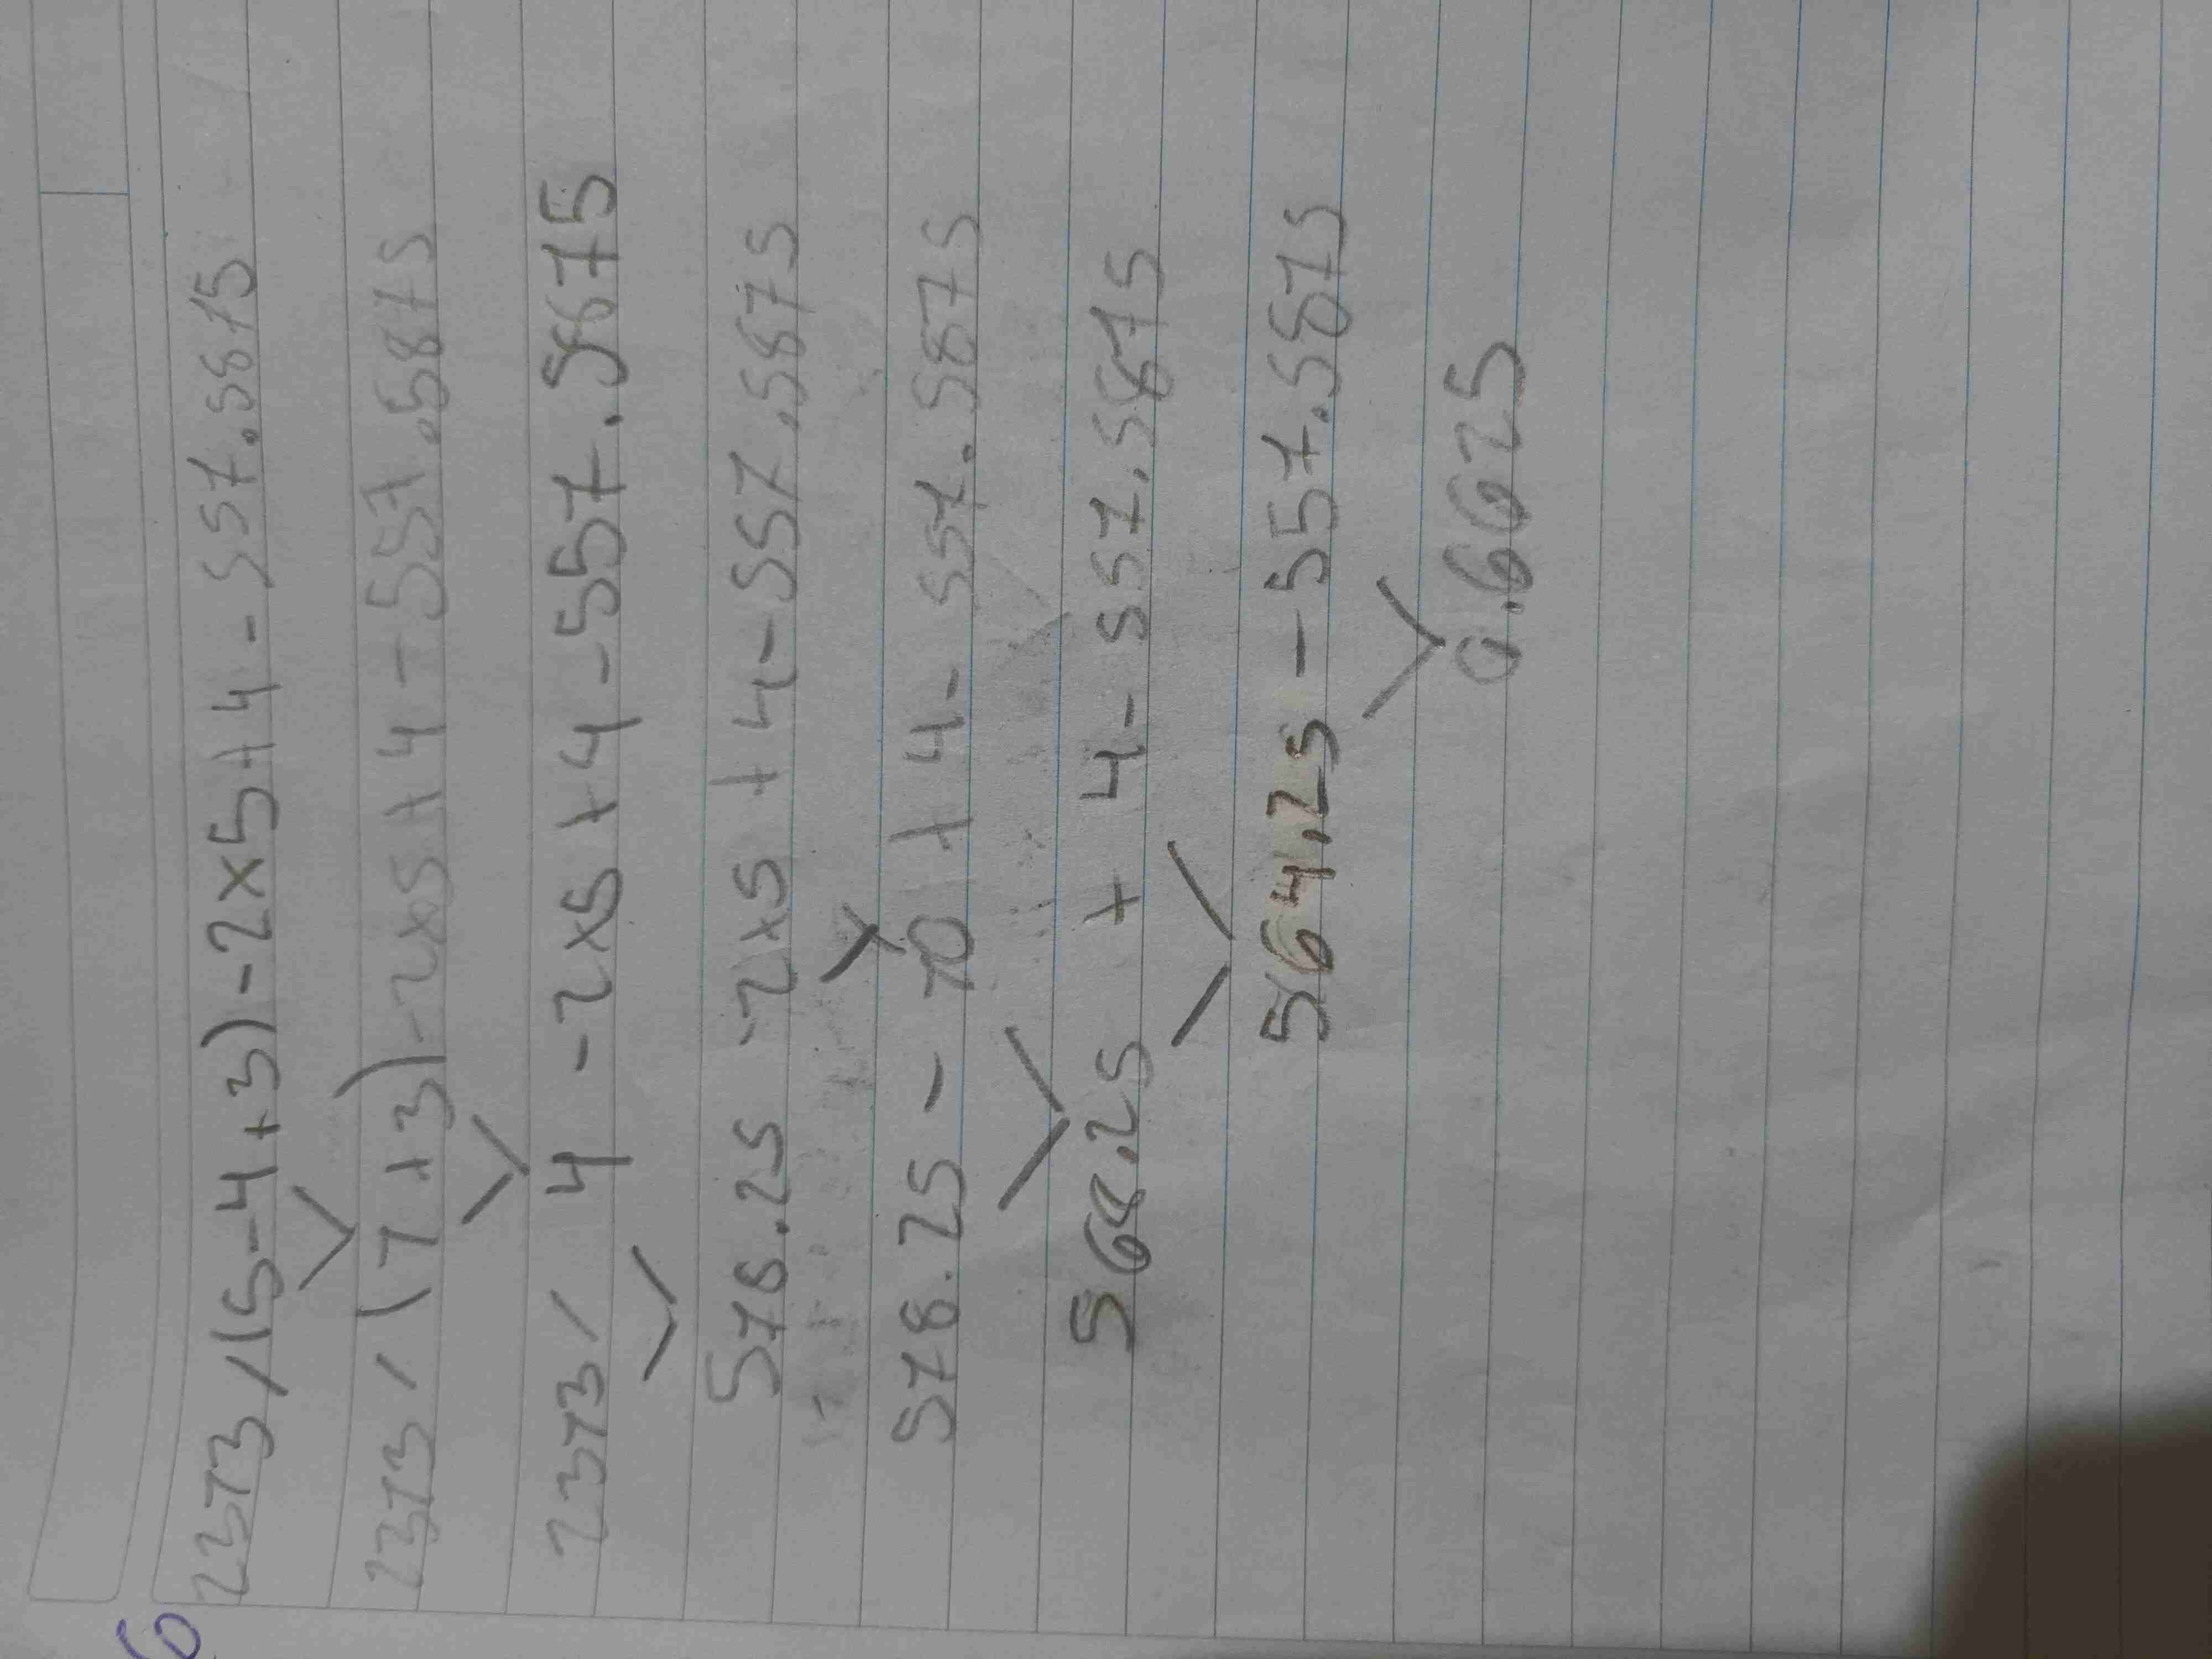 6
2373/(5-4+3)-2x5+4-557.5875
2373/(1+3)-2x5+4-557.5875
2373/ 4 -2x5+4-557.5875
578.25 -2x5 +4-557.5875
578.25 - 10 +4-557.5875
568.25 + 4-557.5875
564.25 -557.5875
0.6625